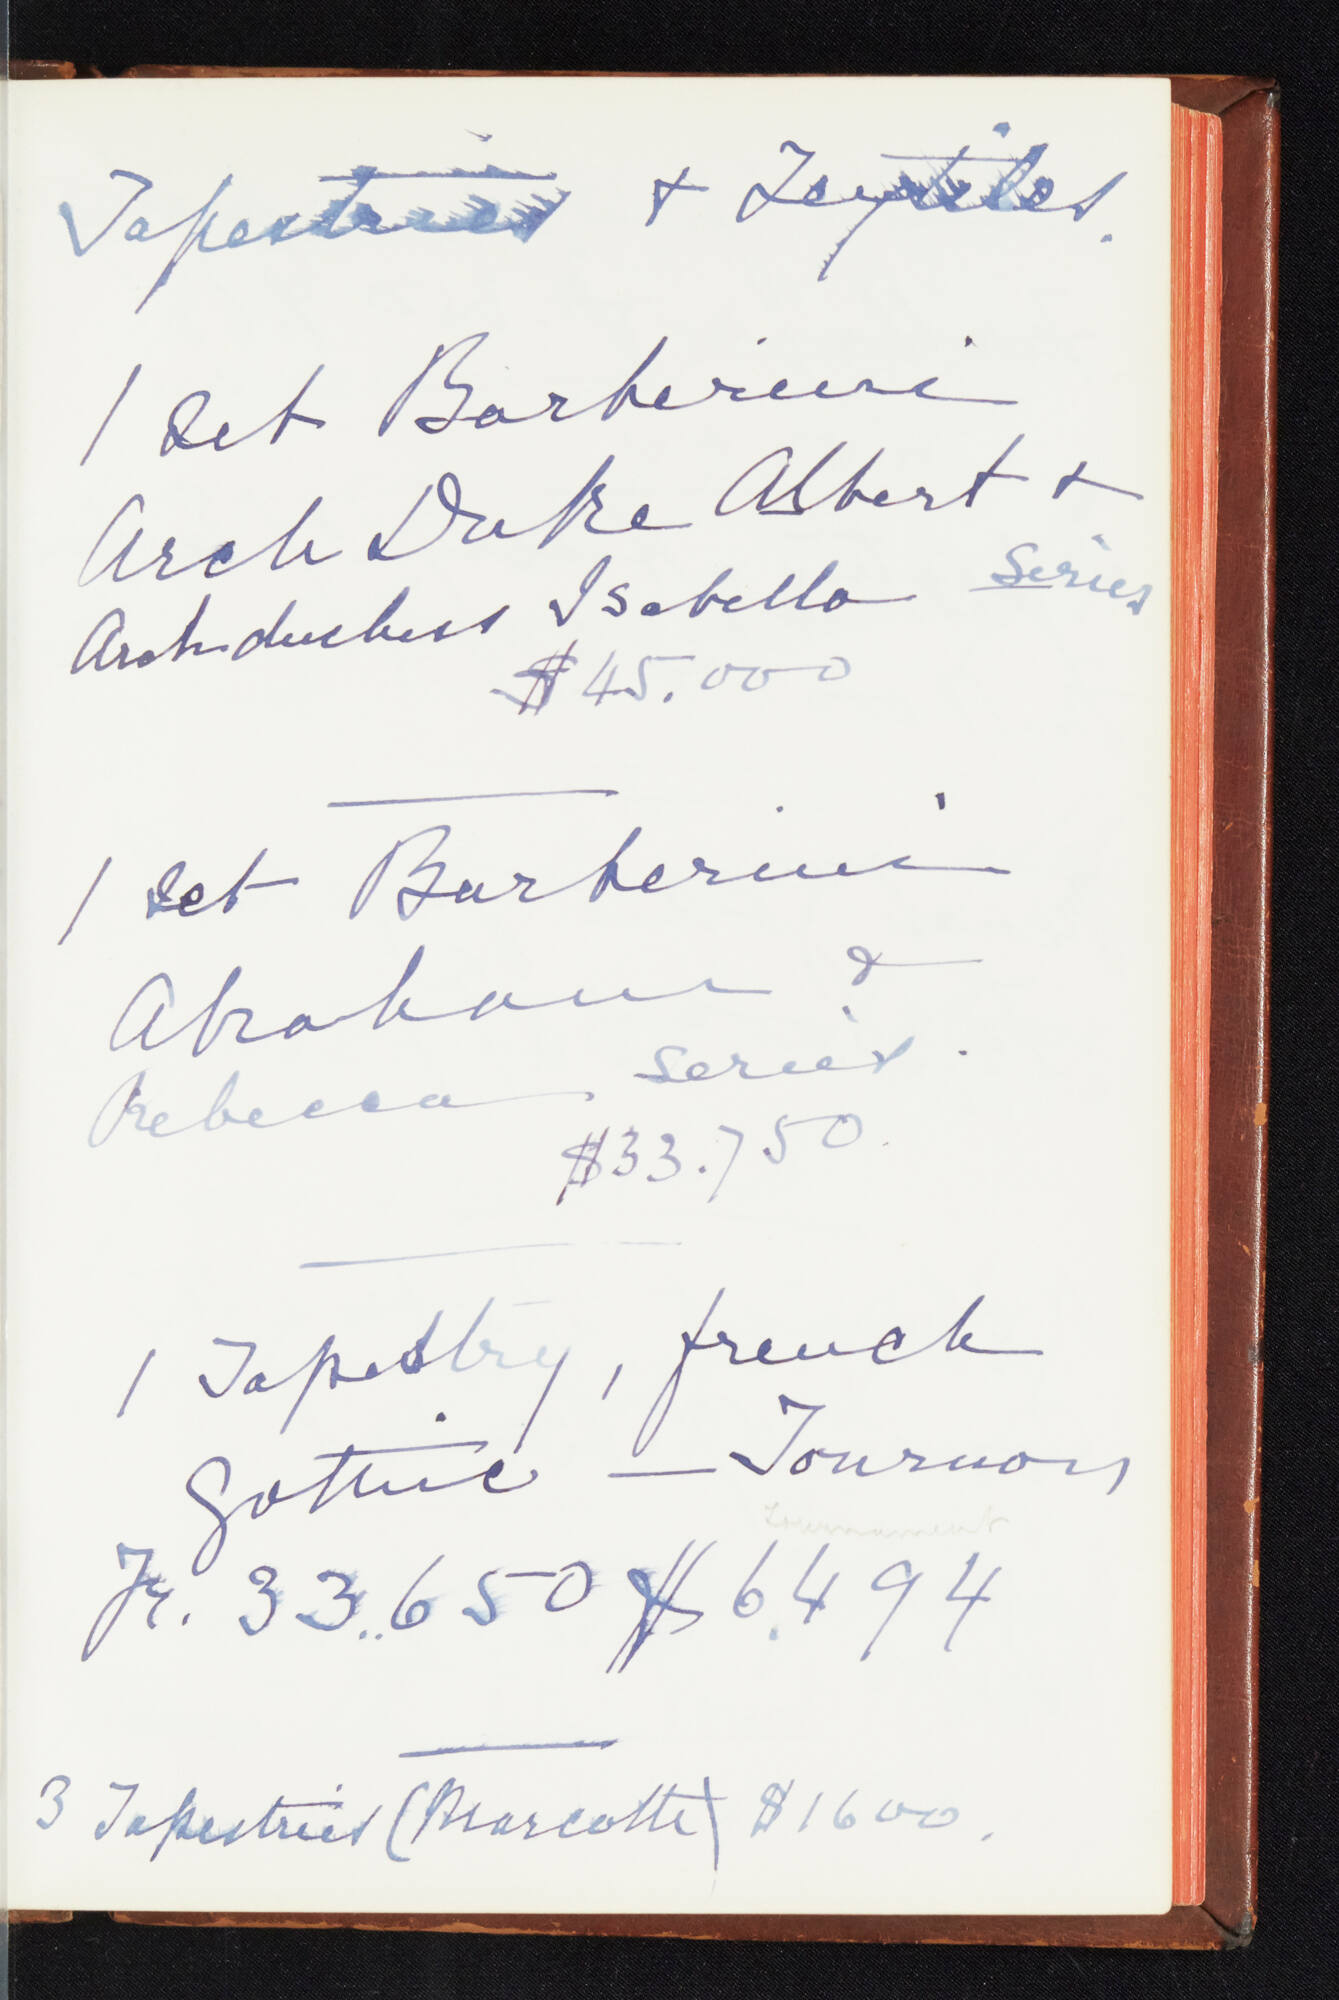 Tapestries + Textiles.
1 Set Barberini
Arch Duke Albert +
Archduchess Isabella Series
$45.000
1 Set Barberini
Abraham &
Rebecca Series.
$33.750.
1 Tapestry, french
Gothic — Tournois
Tournament
Fr. 33..650 $6.494
3 Tapestries (Marcotte) $1600.